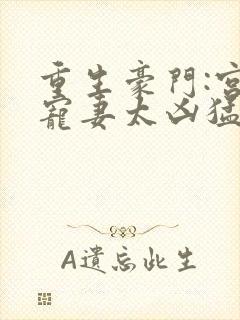 重生豪門:宮
寵妻太凶猛
A遺忘此生